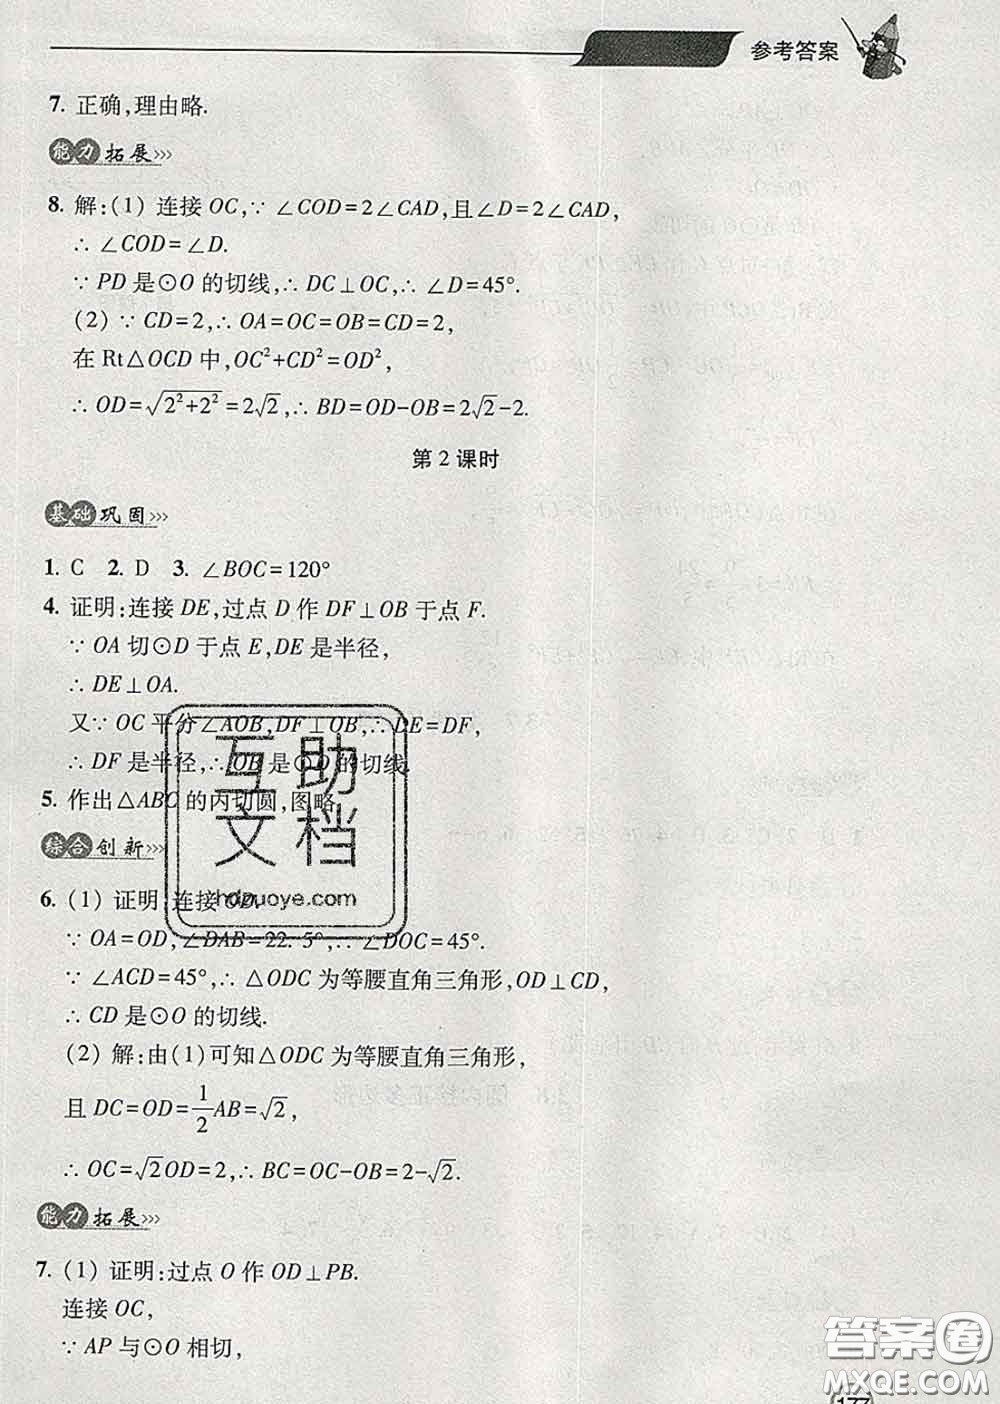 参考答案
7. 正确,理由略.
能力拓展>>>
8. 解:(1) 连接 OC,∵ ∠COD=2∠CAD,且∠D=2∠CAD,
∴ ∠COD=∠D.
∵ PD 是⊙O 的切线,∴ DC⊥OC,∴ ∠D=45°.
(2) ∵ CD=2,∴ OA=OC=OB=CD=2,
在 Rt△OCD 中,OC²+CD²=OD²,
∴ OD=√(2²+2²)=2√2,∴ BD=OD-OB=2√2-2.
第 2 课时
基础巩固>>>
1. C 2. D 3. ∠BOC=120°
4. 证明:连接 DE,过点 D 作 DF⊥OB 于点 F.
∵ OA 切⊙D 于点 E,DE 是半径,
∴ DE⊥OA.
又∵ OC 平分∠AOB,DF⊥OB,∴ DE=DF,
∴ DF 是半径,∴ OB 是⊙D 的切线.
5. 作出△ABC 的内切圆,图略.
综合创新>>>
6. (1) 证明:连接 OD.
∵ OA=OD,∠DAB=22.5°,∴ ∠DOC=45°.
∵ ∠ACD=45°,∴ △ODC 为等腰直角三角形,OD⊥CD,
∴ CD 是⊙O 的切线.
(2) 解:由(1)可知△ODC 为等腰直角三角形,
且 DC=OD=1/2AB=√2,
∴ OC=√2OD=2,∴ BC=OC-OB=2-√2.
能力拓展>>>
7. (1) 证明:过点 O 作 OD⊥PB.
连接 OC,
∵ AP 与⊙O 相切,
177
互助文档
hdzuoye.com
答案圈
MXQE.COM